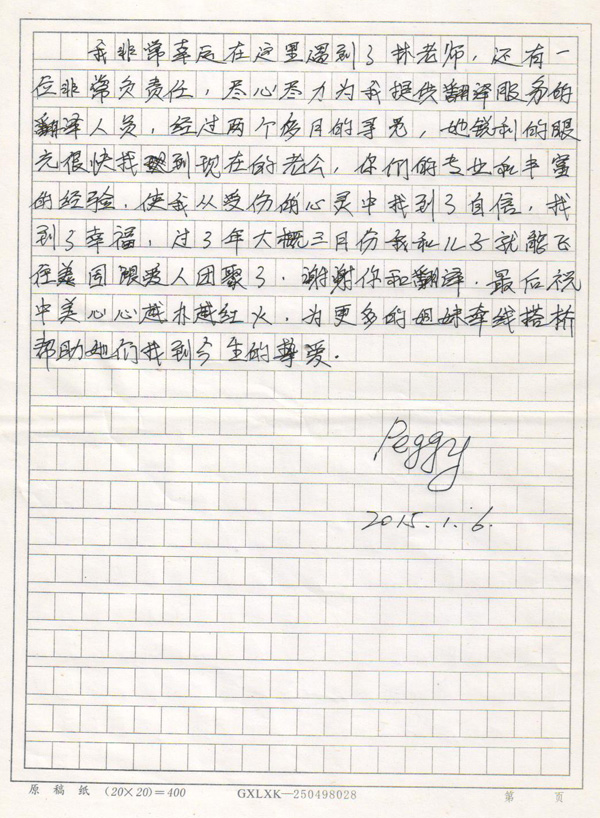 我非常幸运在这里遇到了林老师，还有一
位非常负责任，尽心尽力为我提供翻译服务的
翻译人员，经过两个多月的寻觅，她锐利的眼
光很快找到现在的老公，你们的专业和丰富
的经验，使我从受伤的心灵中找到了自信，找
到了幸福，过了年大概三月份我和儿子就能飞
往美国跟爱人团聚了，谢谢你和翻译，最后祝
中美心心越办越红火，为更多的姐妹牵线搭桥
帮助她们找到今生的挚爱.
Peggy
2015.1.6.
原稿纸 (20×20)=400 GXLXK—250498028 第 页